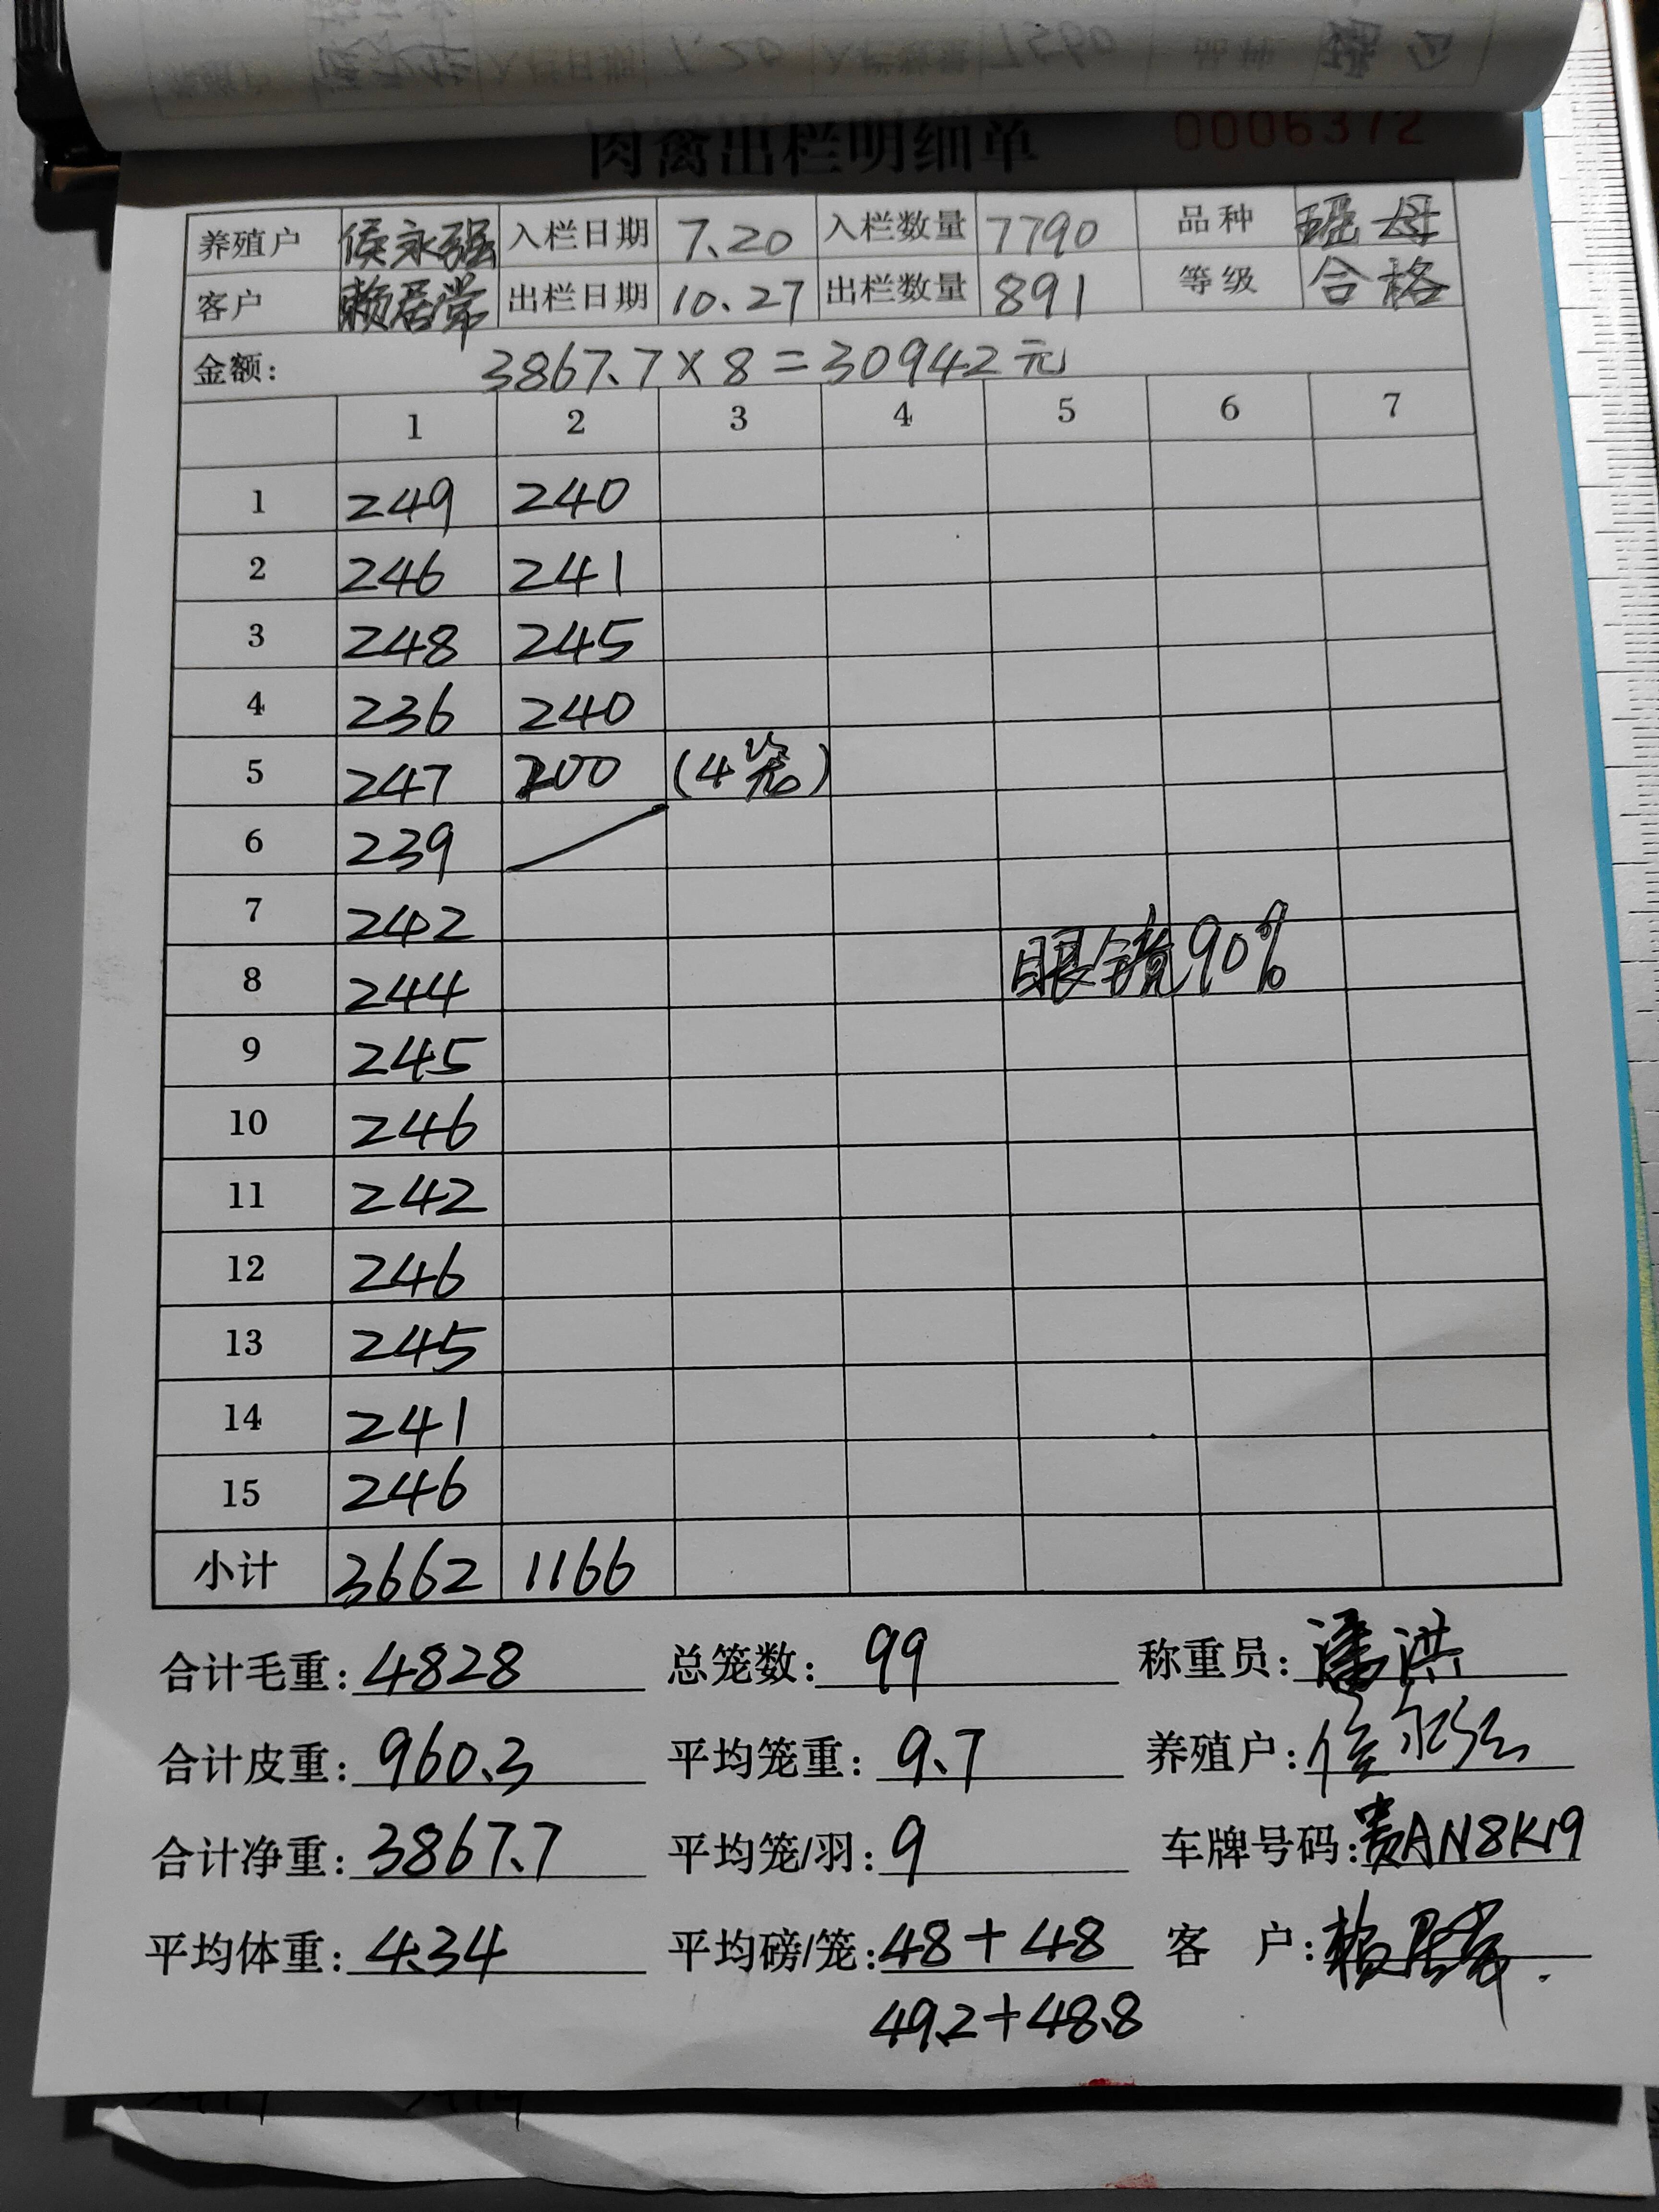 肉禽出栏明细单 0006372
养殖户 侯永强 入栏日期 7.20 入栏数量 7790 品种 瑶母
客户 赖居常 出栏日期 10.27 出栏数量 891 等级 合格
金额: 3867.7×8=30942元
1 2 3 4 5 6 7
1 249 240
2 246 241
3 248 245
4 236 240
5 247 200 (4笼)
6 239
7 242
8 244 眼镜90%
9 245
10 246
11 242
12 246
13 245
14 241
15 246
小计 3662 1166
合计毛重: 4828 总笼数: 99 称重员: 潘洪
合计皮重: 960.3 平均笼重: 9.7 养殖户: 侯永强
合计净重: 3867.7 平均笼/羽: 9 车牌号码: 贵AN8K19
平均体重: 4.34 平均磅/笼: 48+48 客 户: 赖居常
49.2+48.8